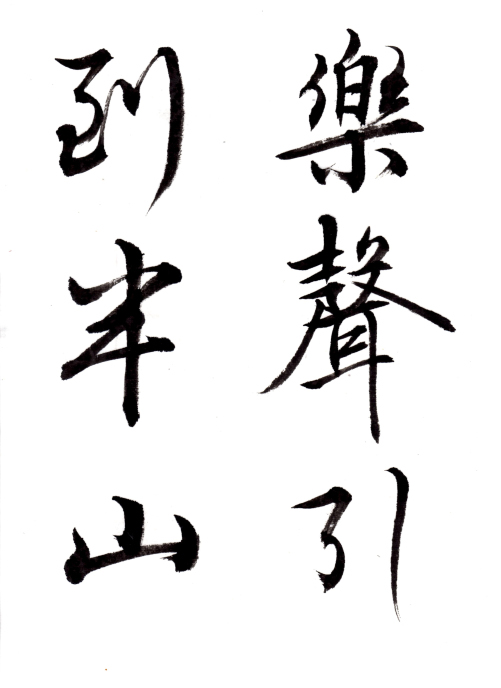 樂聲引
到半山